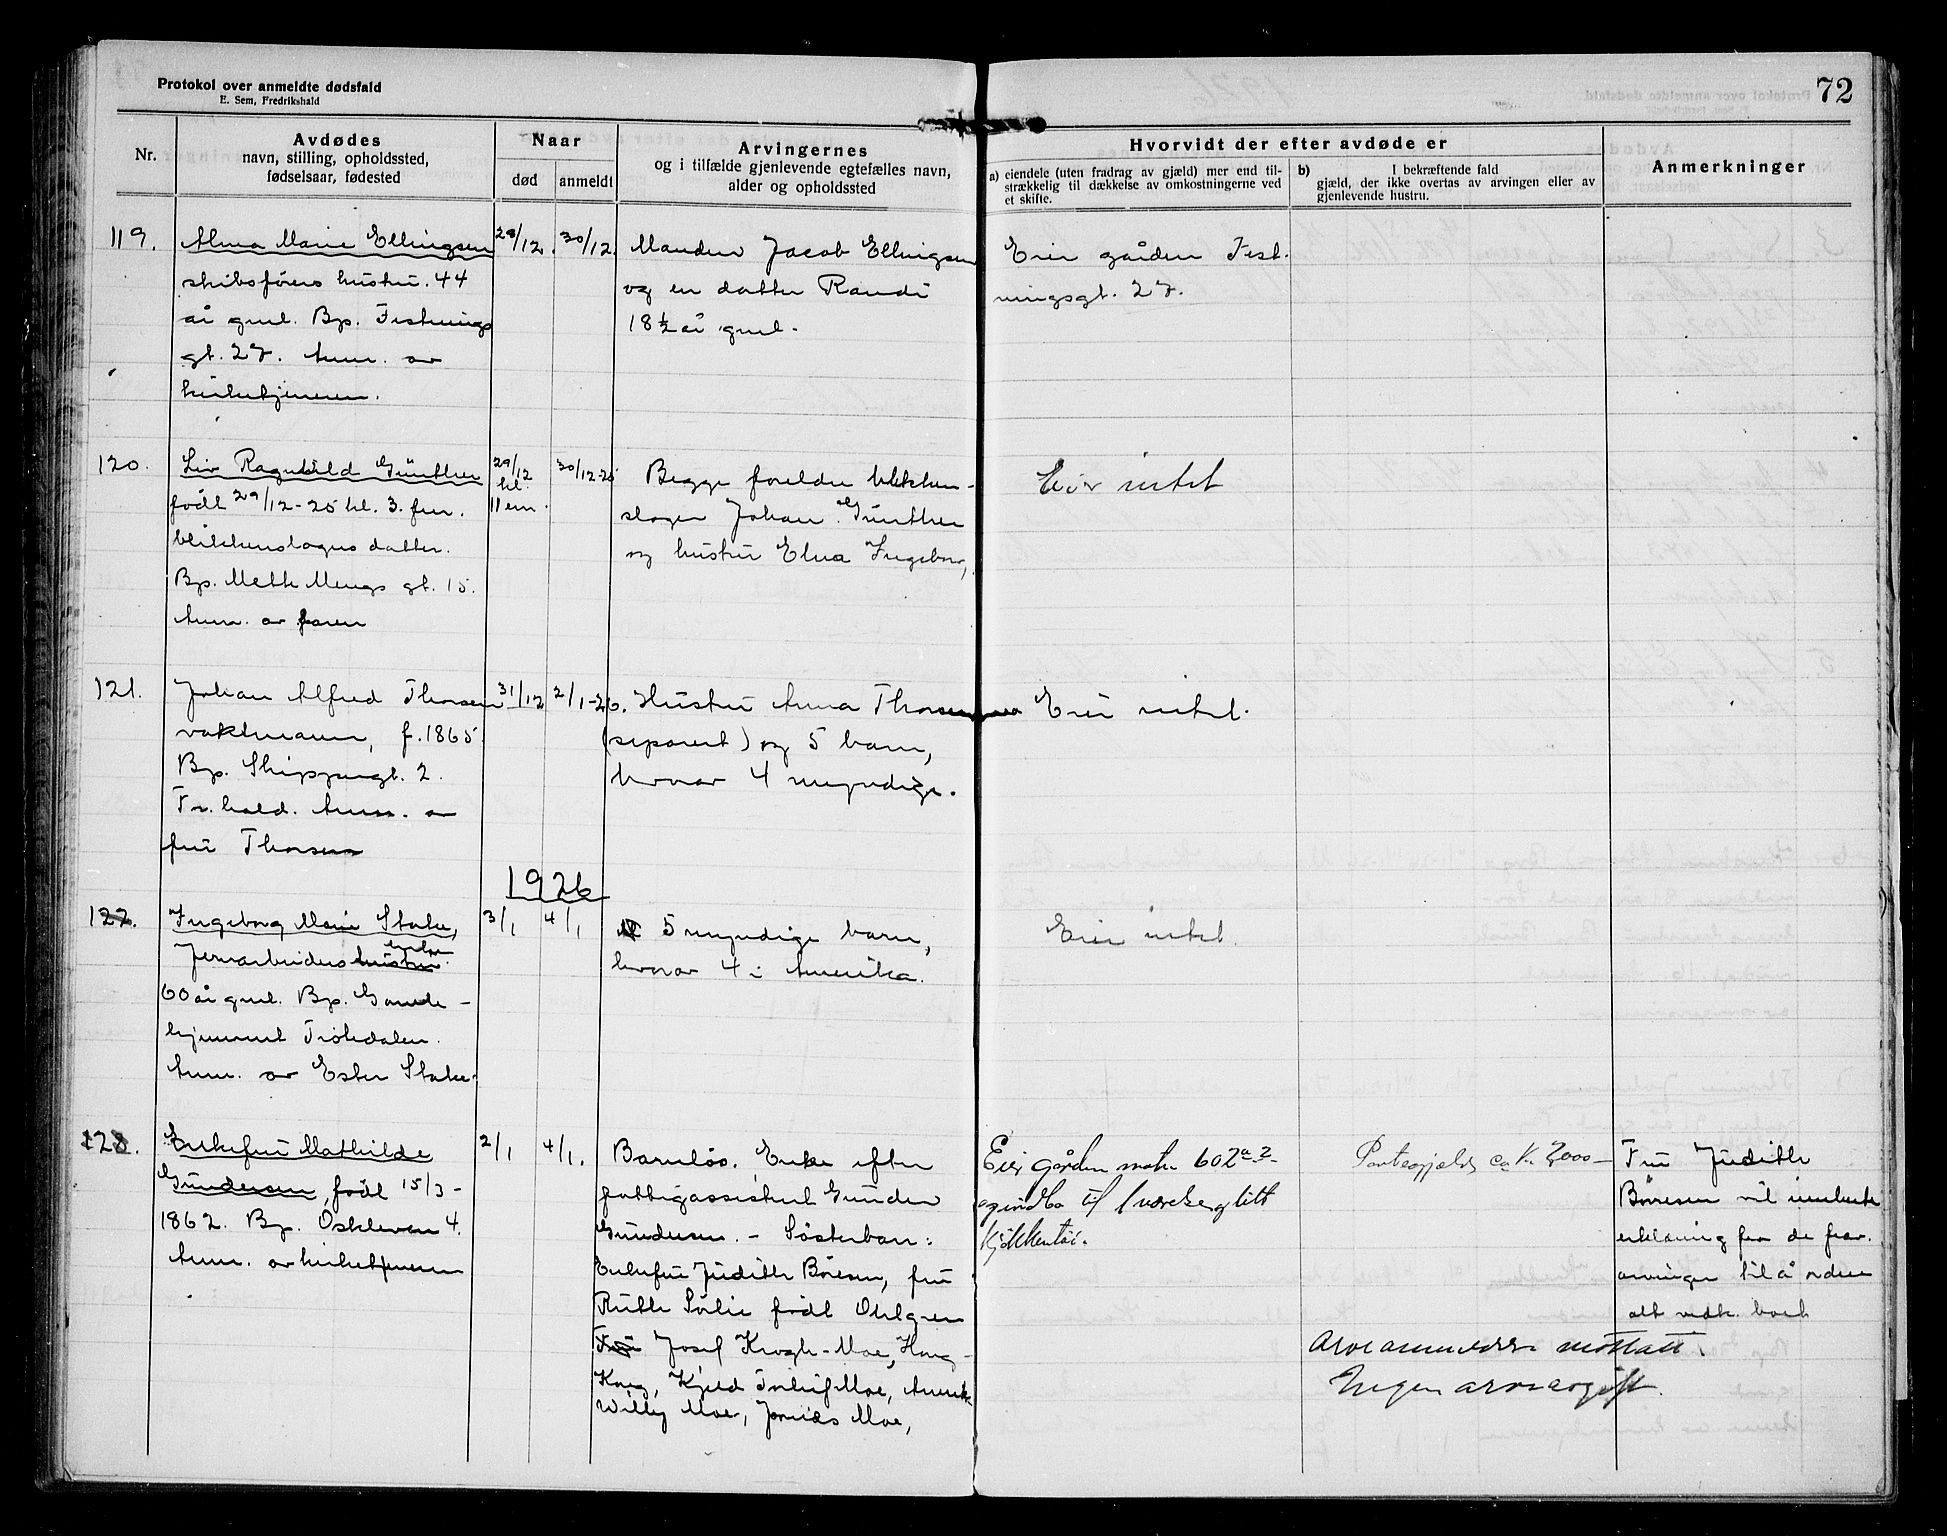 Protokol over anmeldte dødsfald
E. Sem, Fredrikshald
72
Nr.
Avdødes
navn, stilling, opholdssted,
fødselsaar, fødested
Naar
død
anmeldt
Arvingernes
og i tilfælde gjenlevende egtefælles navn,
alder og opholdssted
Hvorvidt der efter avdøde er
a) eiendele (uten fradrag av gjæld) mer end til-
strækkelig til dækkelse av omkostningerne ved
et skifte.
b) I bekræftende fald
gjæld, der ikke overtas av arvingen eller av
gjenlevende hustru.
Anmerkninger
119.
Alma Marie Ellingsen
skibsførers hustru. 44
år gml. Bp. Festnings
gt. 27. Anm. av
kirketjeneren.
28/12.
30/12.
Manden Jacob Ellingsen
og en datter Randi
18½ år gml.
Eier gården Fest.
ningsgt. 27.
120.
Liv Ragnhild Günther
født 29/12-25 kl. 3. fm.
blikkenslagers datter.
Bp. Mette Mengs gt. 15.
Anm. av faren
29/12
kl.
11 em.
30/12-25
Begge foreldre blikken-
slager Johan Günther
og hustru Elna Ingeborg,
Eier intet
121.
Johan Alfred Thorsen
vaktmann, f. 1865.
Bp. Skippergt. 2.
Fr.hald. Anm. av
fru Thorsen
31/12
2/1-26.
Hustru Anna Thorsen
(separert) og 5 barn,
hvorav 4 umyndige.
Eier intet.
1926
122.
Ingeborg Marie Stake,
enke
Jernarbeiders hustru.
60 år gml. Bp. Gamle-
hjemmet Trøkedalen.
Anm. av Ester Stake.
3/1
4/1
5 myndige barn,
hvorav 4 i Amerika.
Eier intet.
123.
Enkefru Mathilde
Gundersen, født 15/3-
1862. Bp. Oskleven 4.
Anm. av kirketjeneren
2/1
4/1.
Barnløs. Enke efter
fattigassistent Gunder
Gundersen. - Søsterbarn:
Enkefru Judith Børesen, fru
Ruth Sølie født Ohlgren
Fru Josef Krogh-Moe, Hong-
Kong, Kjeld Torleif Moe, Amerik
Willy Moe, Moe,
Eier gården matr 602 a-2-
og indbo til 1 værelse og litt
kjøkkentøi.
Pantegjeld ca Kr. 2000-
Fru Judith
Børesen vil innhente
erklæring fra de frav.
arvinger til å ordne
alt vedk. boet
Arveanmeldelse mottatt.
Ingen arveavgift.